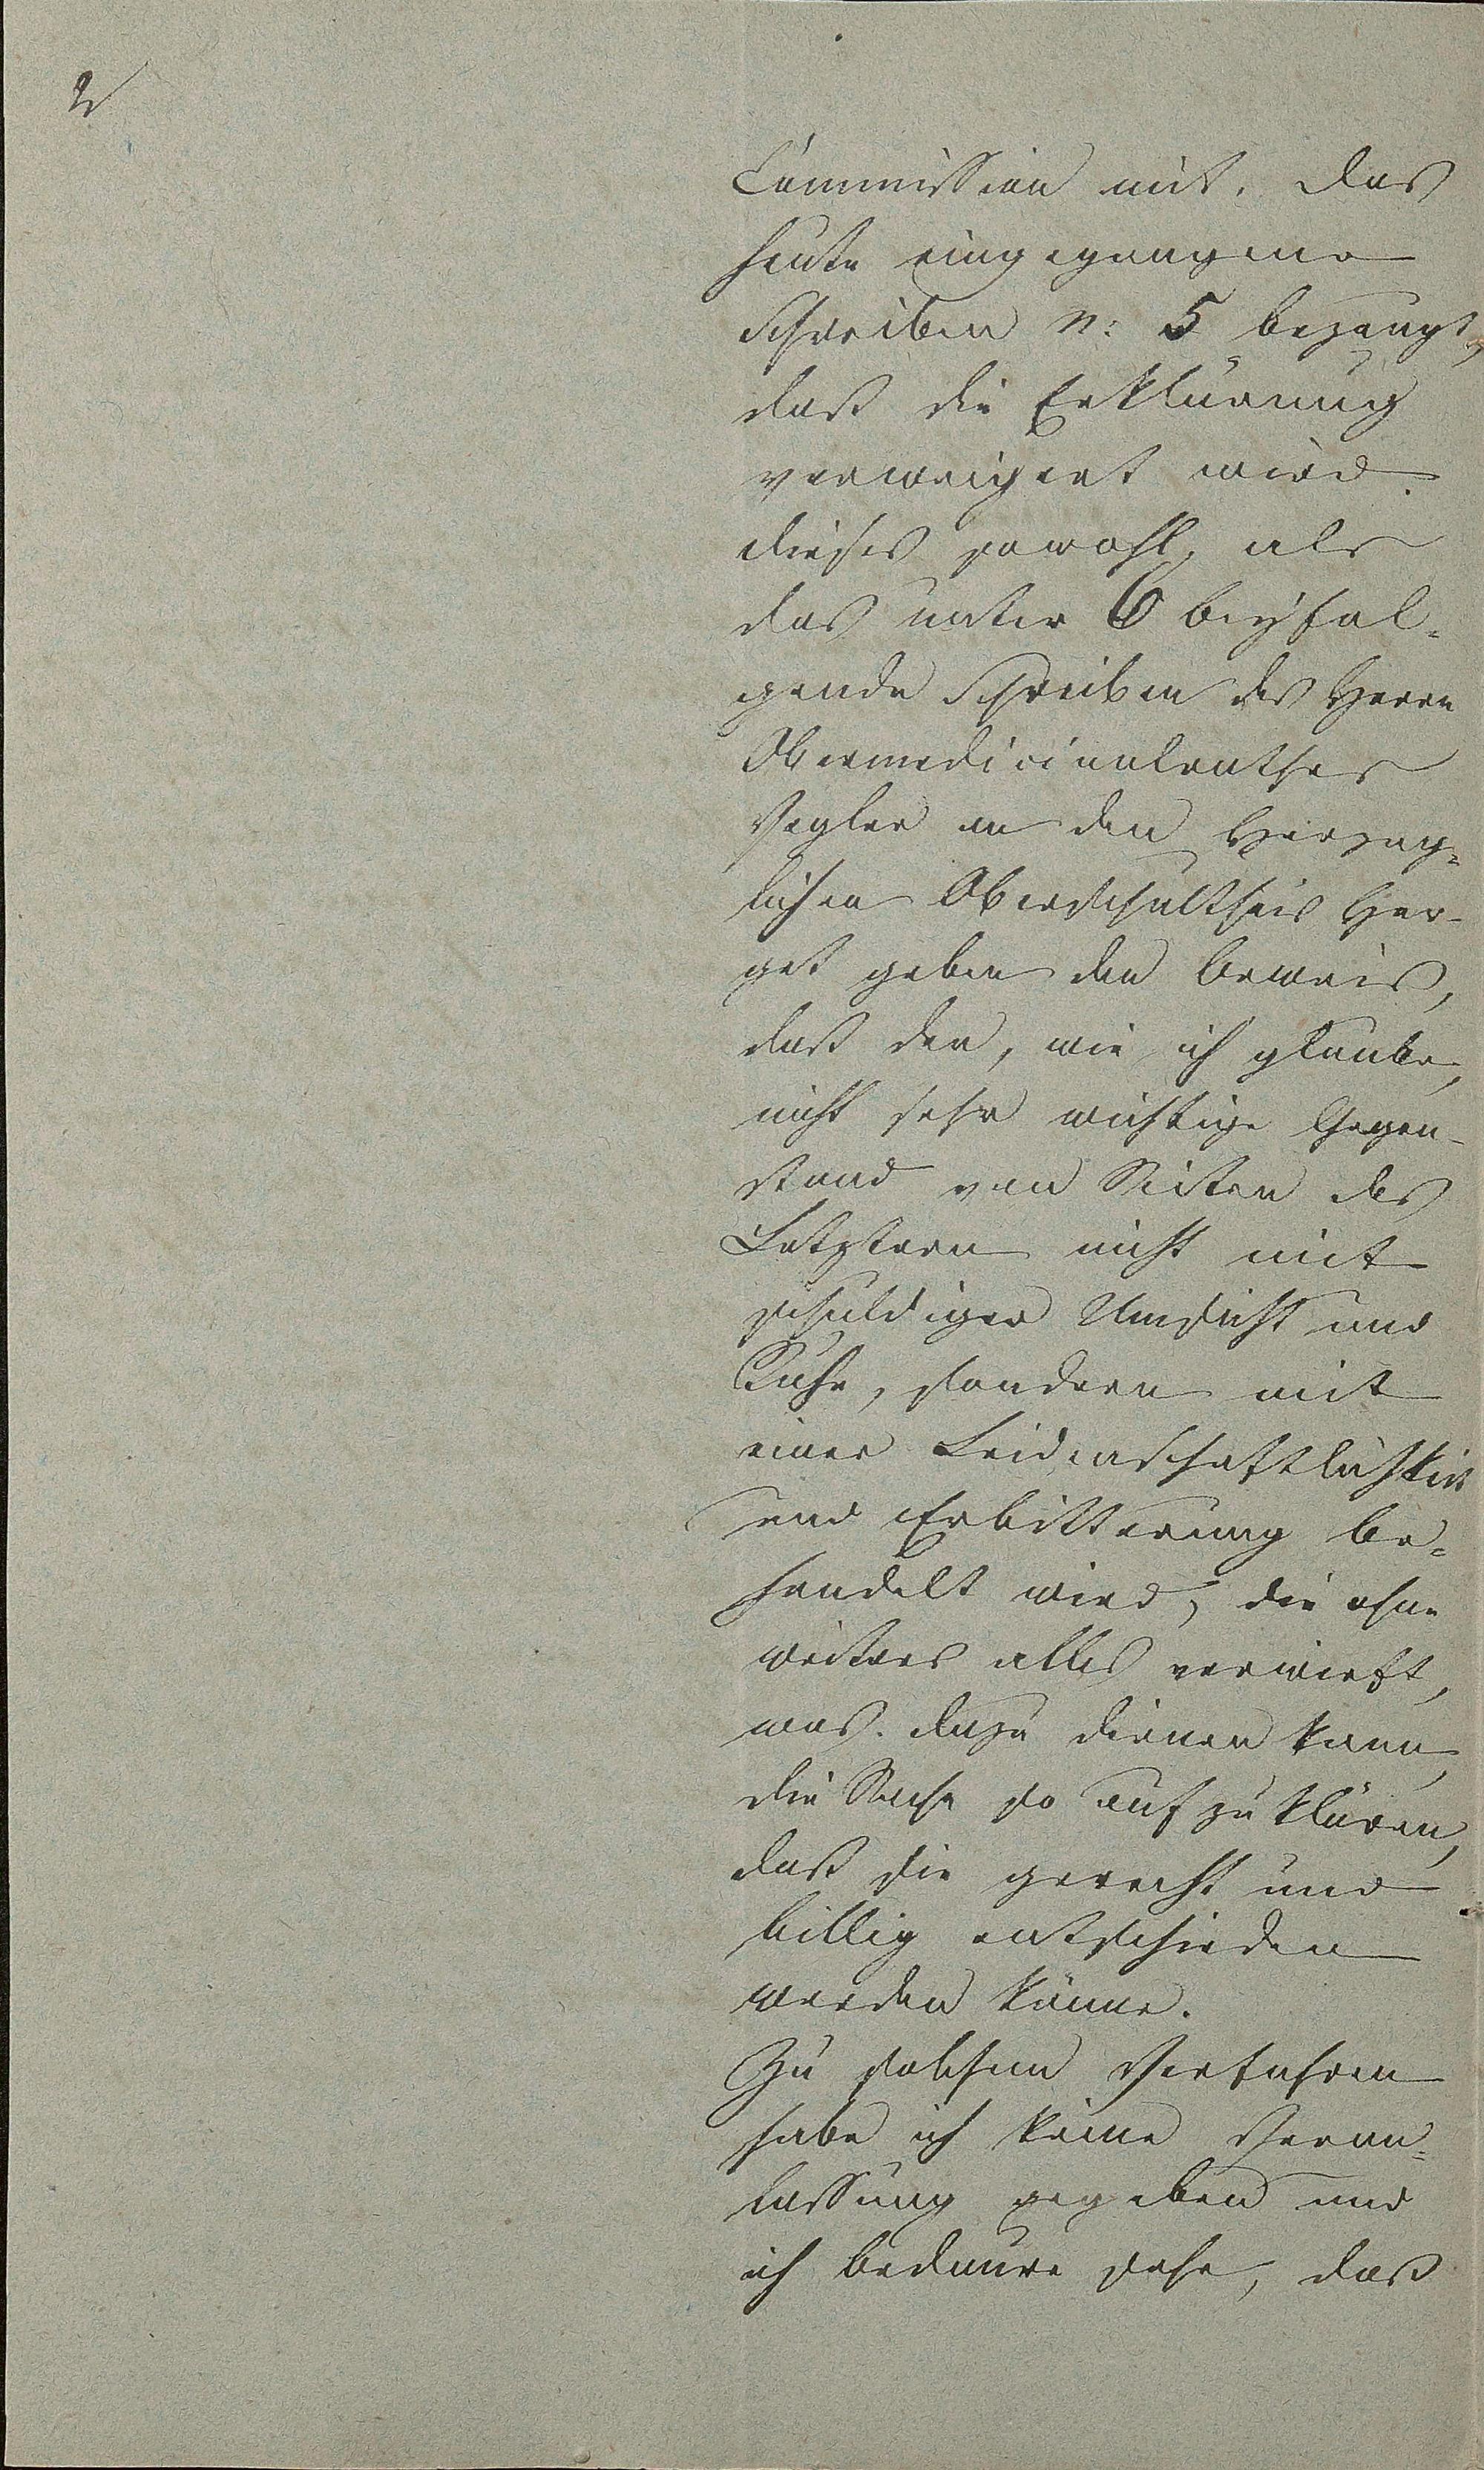 2
Commission mit. Das
heute eingegangene
Schreiben N: 5 bezeugt,
daß die Erklärung
verweigert wird.
dieses sowohl, als
das unter 6 beyfol-
gende Schreiben des Herrn
Obermedicinalrathes
Vogler an den Herzog-
lichen Oberschultheis Her-
get geben den Beweis,
daß der, wie ich glaube,
nicht sehr wichtige Gegen-
stand von Seiten des
Letztern nicht mit
schuldiger Umsicht und
Ruhe, sondern mit
einer Leidenschaftlichkeit
und Erbitterung be-
handelt wird, die ohne
weiters alles verwirft,
was dazu dienen kann,
die Sache so aufzuklären,
daß sie gerecht und
billig entschieden
werden könne.
Zu solchem Verfahren
habe ich keine Veran-
lassung gegeben und
ich bedaure sehr, daß